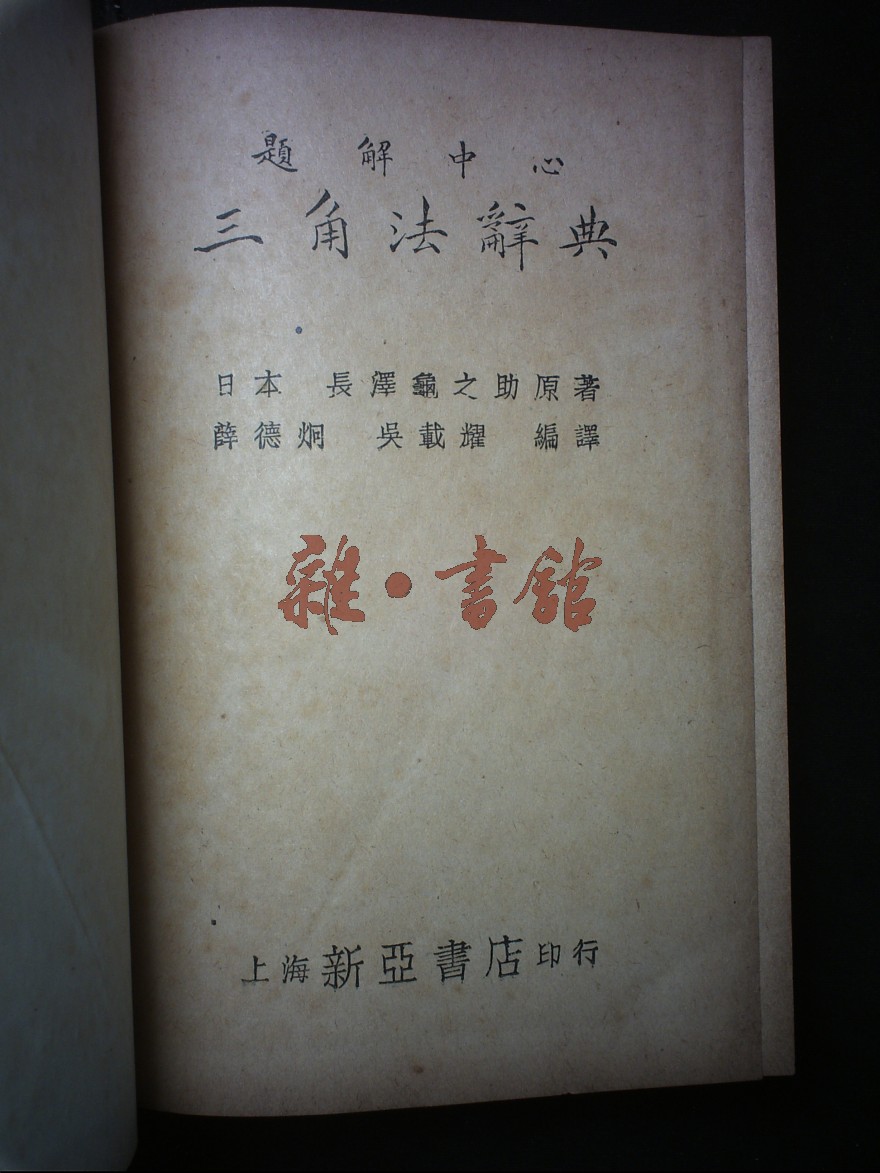 題解中心
三角法辭典
日本 長澤龜之助原著
薛德炯 吳載耀 編譯
雜·書館
上海新亞書店印行